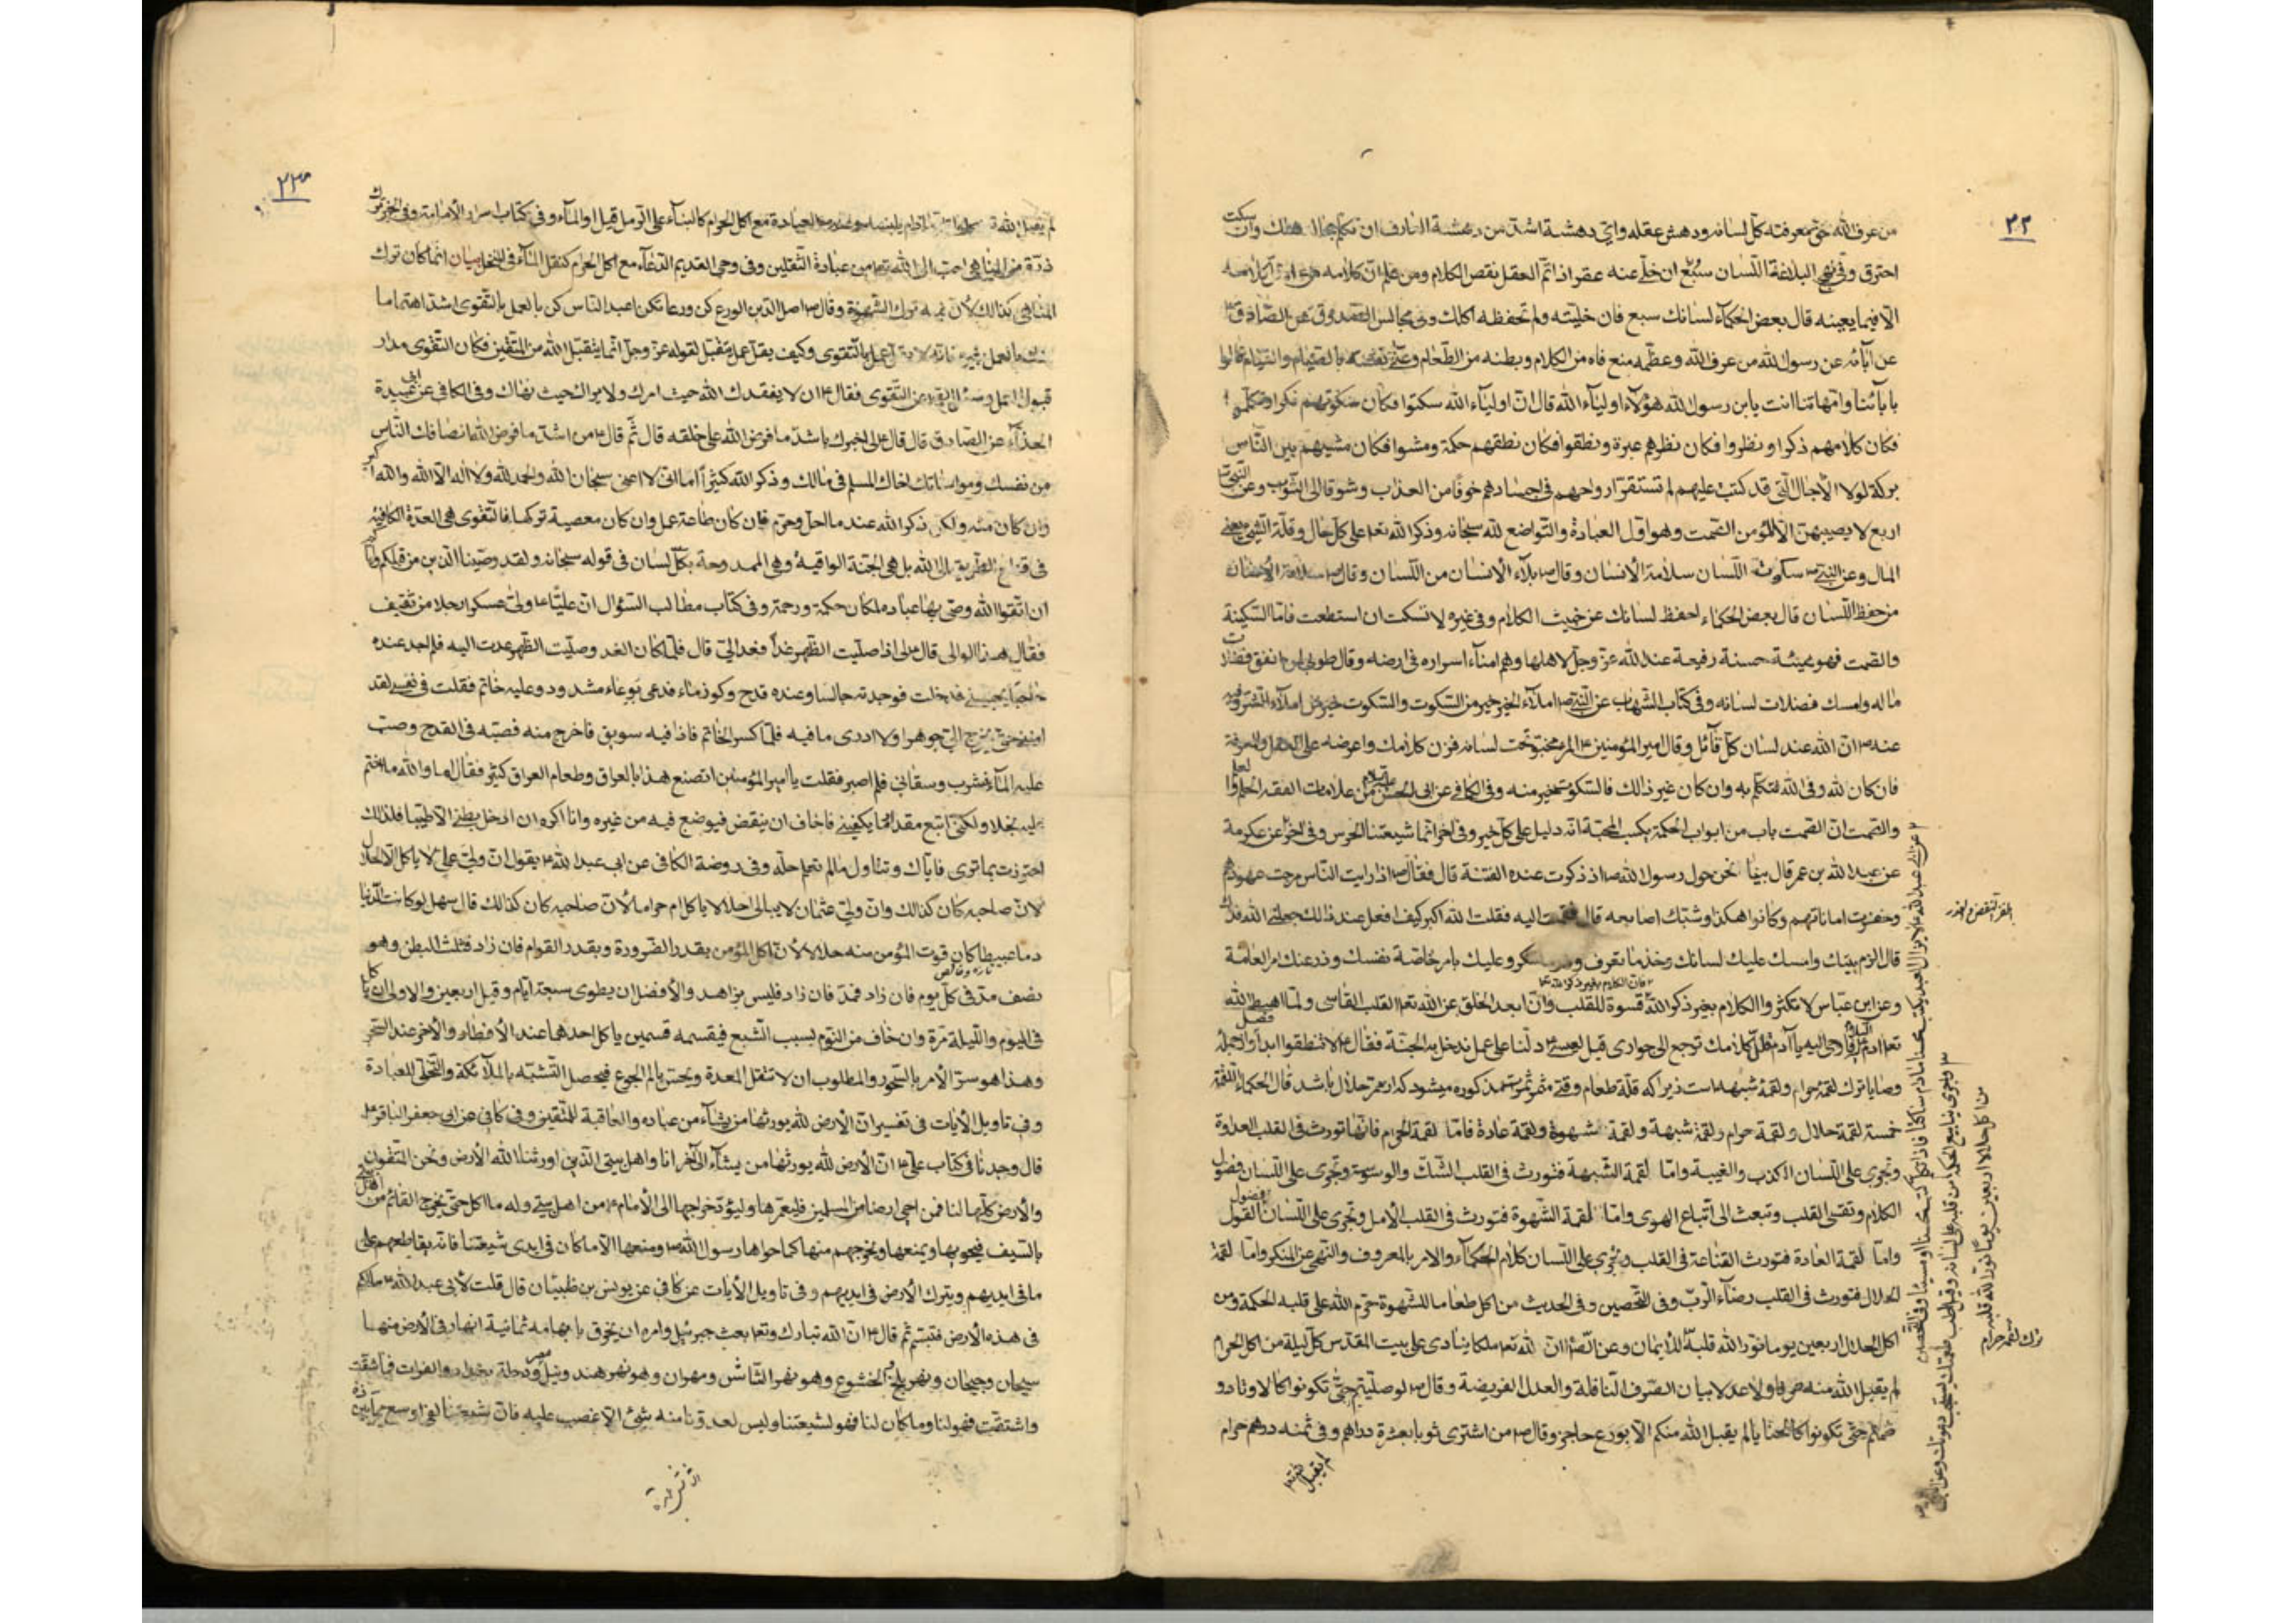 ٢٢
من عرف الله حق معرفته كلّ لسانه ودهش عقله واىّ دهشة اشدّ من دهشة العارف ان تكلّم بحاله هلك وان سكت
احترق وفى نهج البلاغة اللّسان سبُعٌ ان خلّے عنه عقر اذا تمّ العقل نقص الكلام ومن علم انّ كلامه من عمله قلّ كلامه
الّا فيما يعينه قال بعض الحكمآء لسانك سبع فان خليّته ولم تحفظه اكلك وفى مجالس الصّدوق عن الصّادق ع
عن آبآئه عن رسول الله من عرف الله وعظّمه منع فاه من الكلام وبطنه من الطّعام وعنّى نفسه بالصّيام والقيام قالوا
بآبآئنا وامّهاتنا انت يا بن رسول الله هؤلآء اوليآء الله قال انّ اوليآء الله سكتوا فكان سكوتهم ذكرا وتكلّموا
فكان كلامهم ذكرا ونظروا فكان نظرهم عبرة ونطقوا فكان نطقهم حكمة ومشوا فكان مشيهم بين النّاس
بركة لولا الآجال الّتى قد كتبت عليهم لم تستقرّ ارواحهم فى اجسادهم خوفا من العذاب وشوقا الى الثّواب وعن النّبى ص
اربع لا يصيبهنّ الّا المؤمن الصّمت وهو اوّل العبادة والتّواضع لله سبحانه وذكر الله تعا على كلّ حال وقلّة الشّئ يعنے
المال وعن النّبى ص سكوت اللّسان سلامة الأنسان وقال ص بلآء الأنسان من اللّسان وقال ص سلامة الأنسان
من حفظ اللّسان قال بعض الحكمآء احفظ لسانك عن خبيث الكلام وفى غيره لا تسكت ان استطعت فامّا السّكينة
والصّمت فهو هيئة حسنة رفيعة عند الله عزّ وجلّ لاهلها وهم امنآء اسراره فى ارضه وقال طوبى لمن انفق فضلات
ماله وامسك فضلات لسانه وفى كتاب الشّهاب عن النّبى ص املآء الخير خير من السّكوت والسّكوت خير من املآء الشّر وفيه
عنه ص انّ الله عند لسان كلّ قآئل وقال امير المؤمنين ع المرء مخبوّ تحت لسانه فزن كلامك واعرضه على العقل والمعرفة
فان كان لله وفى الله فتكلّم به وان كان غير ذلك فالسّكوت خير منه وفى الكافى عن ابى الحسن ع من علامات الفقه الحلم والعلم
والصّمت انّ الصّمت باب من ابواب الحكمة يكسب المحبّة انّه دليل على كلّ خير وفى اخر انّما شيعتنا الخرس وفى اخر عن عكرمة
عن عبد الله بن عمر قال بينا نحن حول رسول الله ص اذ ذكرت عنده الفتنة قال فقال ص اذا رايت النّاس مرجت عهودهم
وخفرت اماناتهم وكانوا هكذا وشبّك اصابعه قال فقمت اليه فقلت الله اكبر كيف افعل عند ذلك جعلنى الله فداك
قال الزم بيتك وامسك عليك لسانك وخذ ما تعرف وعليك بامر خاصّة نفسك وذر عنك امر العامّة
وعن ابن عبّاس لا تكثروا الكلام بغير ذكر الله قسوة للقلب وانّ ابعد الخلق عن الله تعا القلب القاسى ولمّا اهبط الله
فان الكلام بغير ذكر الله
وصايا ترك لقمۀ حرام ولقمۀ شبهه است زيرا كه قلّة طعام وقتے مثمر ثمرتمذكوره ميشود كه از ممرّ حلال باشد قال الحكمآء اللقمة
خمسة لقمة حلال ولقمة حرام ولقمة شبهة ولقمة شهوة ولقمة عادة فامّا لقمة الحرام فانّها تورث فى القلب العداوة
وتجرى على اللّسان الكذب والغيبة وامّا لقمة الشّبهة فتورث فى القلب الشّك والوسوسة وتجرى على اللّسان فضول
الكلام وتقسى القلب وتبعث الى اتّباع الهوى وامّا لقمة الشّهوة فتورث فى القلب الأمل وتجرى على اللّسان فضول القول
وامّا لقمة العادة فتورث القناعة فى القلب وتجرى على اللّسان كلام الحكمآء والامر بالمعروف والنّهى عن المنكر وامّا لقمة
الحلال فتورث فى القلب رضآء الرّبّ وفى التّحصين وفى الحديث من اكل طعاما للشّهوة حرّم الله على قلبه الحكمة ومن
اكل الحلال اربعين يوما نوّر الله قلبه للأيمان وعن النّبى ص انّ لله تعا ملكا ينادى على بيت المقدّس كلّ ليلة من اكل الحرام
لم يقبل الله منه صرفا ولا عدلا بيان الصّرف النّافلة والعدل الفريضة وقال ص لو صلّيتم حتّى تكونوا كالاوتاد و
صُمتم حتّى تكونوا كالحنايا لم يقبل الله منكم الّا بورع حاجز وقال ص من اشترى ثوبا بعشرة دراهم وفى ثمنه درهم حرام
لم يقبل
ترك لقمۀ حرام
من اكل حلالا اربعين يوما نوّر الله قلبه
٢٣
ذرّة من المناهى احبّ الى الله تعا من عبادة الثّقلين وفى وحى القديم الدّعآء مع اكل الحرام كنقل المآء فى المنخل بيان انّما كان ترك
المناهى كذلك لأنّ فيه ترك الشّهوة وقال ص اصل الدّين الورع كن ورعا تكن اعبد النّاس كن بالعمل بالتّقوى اشدّ اهتماما
منك بالعمل بغيره فانّه لا يقلّ عمل بالتّقوى وكيف يقلّ عمل يتقبّل لقوله عزّ وجلّ انّما يتقبّل الله من المتّقين فكان التّقوى مدار
قبول العمل وسئل الصّادق عن التّقوى فقال ع ان لا يفقدك الله حيث امرك ولا يراك حيث نهاك وفى الكافى عن ابى عبيدة
الحذّآء عن الصّادق قال قال لى الا اخبرك باشدّ ما فرض الله على خلقه قال ثمّ قال ع من اشدّ ما فرض الله انصافك النّاس
من نفسك ومواساتك اخاك المسلم فى مالك وذكر الله كثيرا اما انّى لا اعنى سبحان الله والحمد لله ولا اله الّا الله والله اكبر
وان كان منه ولكن ذكر الله عند ما احلّ وحرّم فان كان طاعة عمل وان كان معصية تركها فالتّقوى هى العدّة الكافية
فى قطع الطّريق الى الله بل هى الجُنّة الواقية وهى الممدوحة بكلّ لسان فى قوله سبحانه ولقد وصّينا الّذين من قبلكم وايّاكم
ان اتّقوا الله وصّى بها عباده لمكان حكمة ورحمة وفى كتاب مطالب السّؤال انّ عليّا ع ولّى عسكرا رجلا من ثقيف
فقال هذا الوالى قال لى اذا صلّيت الظّهر غدا فغد الىّ قال فلمّا كان الغد وصلّيت الظّهر عدت اليه فلم اجد عنده
حاجبا يحبسنى فدخلت فوجدته جالسا وعنده قدح وكوز مآء فدعى بوعاء مشدود وعليه خاتم فقلت فى نفسے لقد
امننى حتّى يخرج الىّ جوهرا ولا ادرى ما فيه فلمّا كسر الخاتم فاذا فيه سويق فاخرج منه فصبّه فى القدح وصبّ
عليه المآء فشرب وسقانى فلم اصبر فقلت يا امير المؤمنين اتصنع هذا بالعراق وطعام العراق كثير فقال اما والله ما اختم
عليه بخلا ولكنّى ابتع مقدار ما يكفينى فاخاف ان ينقض فيوضع فيه من غيره وانا اكره ان ادخل بطنى الّا طيّبا فلذلك
احترزت بما ترى فايّاك وتناول ما لم تعلم حلّه وفى روضة الكافى عن ابى عبد الله ع يقول انّ ولىّ علىّ لا ياكل الّا الحلال
لانّ صاحبه كان كذلك وانّ ولىّ عثمان لا يبالى احلالا ياكل ام حراما لأنّ صاحبه كان كذلك قال سهل لو كانت الدّنيا
دما عبيطا كان قوت المؤمن منه حلالا لأنّ اكل المؤمن بقدر الضّرورة وبقدر القوام فان زاد فثلث البطن وهو
نصف مدّ فى كلّ يوم فان زاد فمدّ فان زاد فليس بزاهد والأفضل ان يطوى سبعة ايّام وقيل اربعين والاولى ان ياكل
فى اليوم واللّيلة مرّة وان خاف من النّوم بسبب الشّبع فيقسمه قسمين ياكل احدهما عند الأفطار والأخر عند السّحر
وهذا هو سرّ الأمر بالسّحور والمطلوب ان لا تثقل المعدة ويحسّ بالم الجوع فيحصل التّشبّه بالملآئكة والتّخلّى للعبادة
وفى تاويل الأيات فى تفسير انّ الأرض لله يورثها من يشآء من عباده والعاقبة للمتّقين وفى كافى عن ابى جعفر الباقر ع
قال وجدنا فى كتاب علىّ ع انّ الأرض لله يورثها من يشآء الى آخر انا واهل بيتى الّذين اورثنا الله الأرض ونحن المتّقون
والأرض كلّها لنا فمن احيى ارضا من المسلمين فليعمرها وليؤدّ خراجها الى الأمام ع من اهل بيتى وله ما اكل حتّى يخرج القائم من اهل بيتى
بالسّيف فيحويها ويمنعها ويخرجهم منها كما حواها رسول الله ص ومنعها الّا ما كان فى ايدى شيعتنا فانّه يقاطعهم على
ما فى ايديهم ويترك الأرض فى ايديهم وفى تاويل الأيات عن كافى عن يونس بن ظبيان قال قلت لأبى عبد الله ع ما لكم
فى هذه الأرض فتبسّم ثمّ قال ع انّ الله تبارك وتعا بعث جبرئيل وامره ان يخرق بابهامه ثمانية انهار فى الأرض منها
سيحان وجيحان ونهر بلخ والخشوع وهو نهر الشّاش ومهران وهو نهر هند ونيل مصر ودجلة بغداد والفرات فما سقت
واشتقّت فهو لنا وما كان لنا فهو لشيعتنا وليس لعدوّنا منه شئ الّا غصب عليه فانّ شيعتنا لفى اوسع ممّا بين